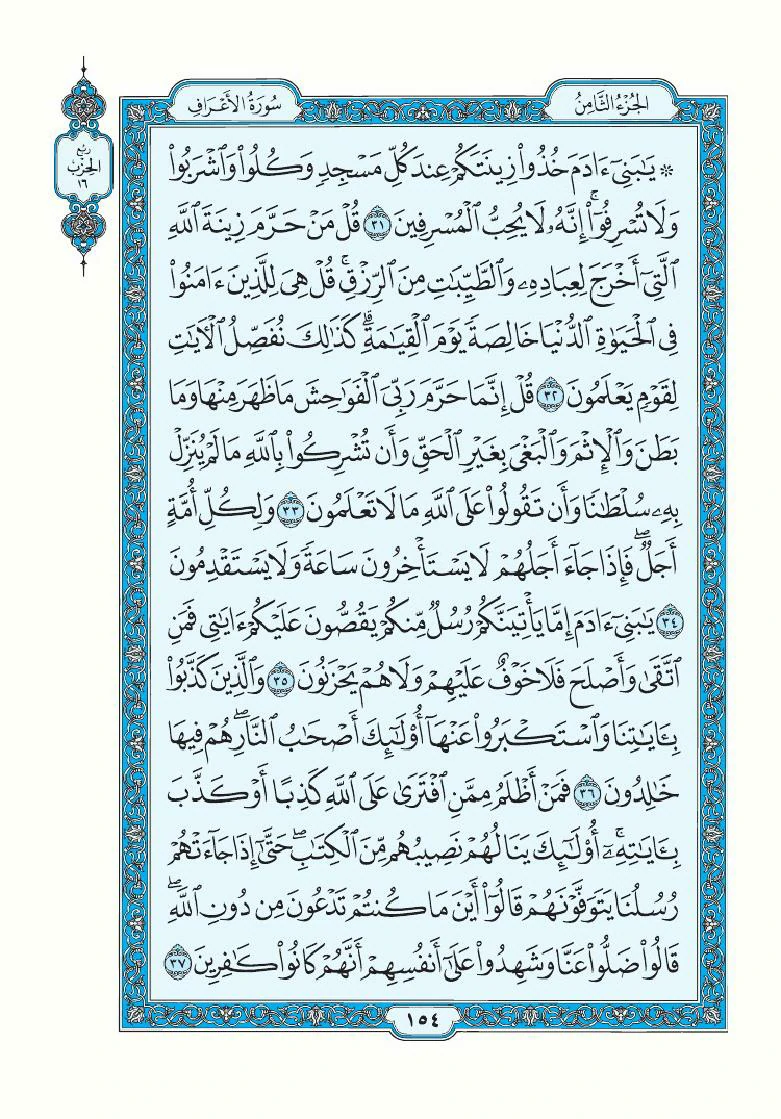 الجُزْءُ الثَّامِنُ
سُورَةُ الأَعْرَافِ
رُبْعُ
الحِزْبِ
١٦
۞ يَٰبَنِيٓ ءَادَمَ خُذُواْ زِينَتَكُمۡ عِندَ كُلِّ مَسۡجِدٖ وَكُلُواْ وَٱشۡرَبُواْ
وَلَا تُسۡرِفُوٓاْۚ إِنَّهُۥ لَا يُحِبُّ ٱلۡمُسۡرِفِينَ ٣١ قُلۡ مَنۡ حَرَّمَ زِينَةَ ٱللَّهِ
ٱلَّتِيٓ أَخۡرَجَ لِعِبَادِهِۦ وَٱلطَّيِّبَٰتِ مِنَ ٱلرِّزۡقِۚ قُلۡ هِيَ لِلَّذِينَ ءَامَنُواْ
فِي ٱلۡحَيَوٰةِ ٱلدُّنۡيَا خَالِصَةٗ يَوۡمَ ٱلۡقِيَٰمَةِۗ كَذَٰلِكَ نُفَصِّلُ ٱلۡأٓيَٰتِ
لِقَوۡمٖ يَعۡلَمُونَ ٣٢ قُلۡ إِنَّمَا حَرَّمَ رَبِّيَ ٱلۡفَوَٰحِشَ مَا ظَهَرَ مِنۡهَا وَمَا
بَطَنَ وَٱلۡإِثۡمَ وَٱلۡبَغۡيَ بِغَيۡرِ ٱلۡحَقِّ وَأَن تُشۡرِكُواْ بِٱللَّهِ مَا لَمۡ يُنَزِّلۡ
بِهِۦ سُلۡطَٰنٗا وَأَن تَقُولُواْ عَلَى ٱللَّهِ مَا لَا تَعۡلَمُونَ ٣٣ وَلِكُلِّ أُمَّةٍ
أَجَلٞۖ فَإِذَا جَآءَ أَجَلُهُمۡ لَا يَسۡتَأۡخِرُونَ سَاعَةٗ وَلَا يَسۡتَقۡدِمُونَ
٣٤ يَٰبَنِيٓ ءَادَمَ إِمَّا يَأۡتِيَنَّكُمۡ رُسُلٞ مِّنكُمۡ يَقُصُّونَ عَلَيۡكُمۡ ءَايَٰتِي فَمَنِ
ٱتَّقَىٰ وَأَصۡلَحَ فَلَا خَوۡفٌ عَلَيۡهِمۡ وَلَا هُمۡ يَحۡزَنُونَ ٣٥ وَٱلَّذِينَ كَذَّبُواْ
بِـَٔايَٰتِنَا وَٱسۡتَكۡبَرُواْ عَنۡهَآ أُوْلَٰٓئِكَ أَصۡحَٰبُ ٱلنَّارِۖ هُمۡ فِيهَا
خَٰلِدُونَ ٣٦ فَمَنۡ أَظۡلَمُ مِمَّنِ ٱفۡتَرَىٰ عَلَى ٱللَّهِ كَذِبًا أَوۡ كَذَّبَ
بِـَٔايَٰتِهِۦٓۚ أُوْلَٰٓئِكَ يَنَالُهُمۡ نَصِيبُهُم مِّنَ ٱلۡكِتَٰبِۖ حَتَّىٰٓ إِذَا جَآءَتۡهُمۡ
رُسُلُنَا يَتَوَفَّوۡنَهُمۡ قَالُوٓاْ أَيۡنَ مَا كُنتُمۡ تَدۡعُونَ مِن دُونِ ٱللَّهِۖ
قَالُواْ ضَلُّواْ عَنَّا وَشَهِدُواْ عَلَىٰٓ أَنفُسِهِمۡ أَنَّهُمۡ كَانُواْ كَٰفِرِينَ ٣٧
١٥٤